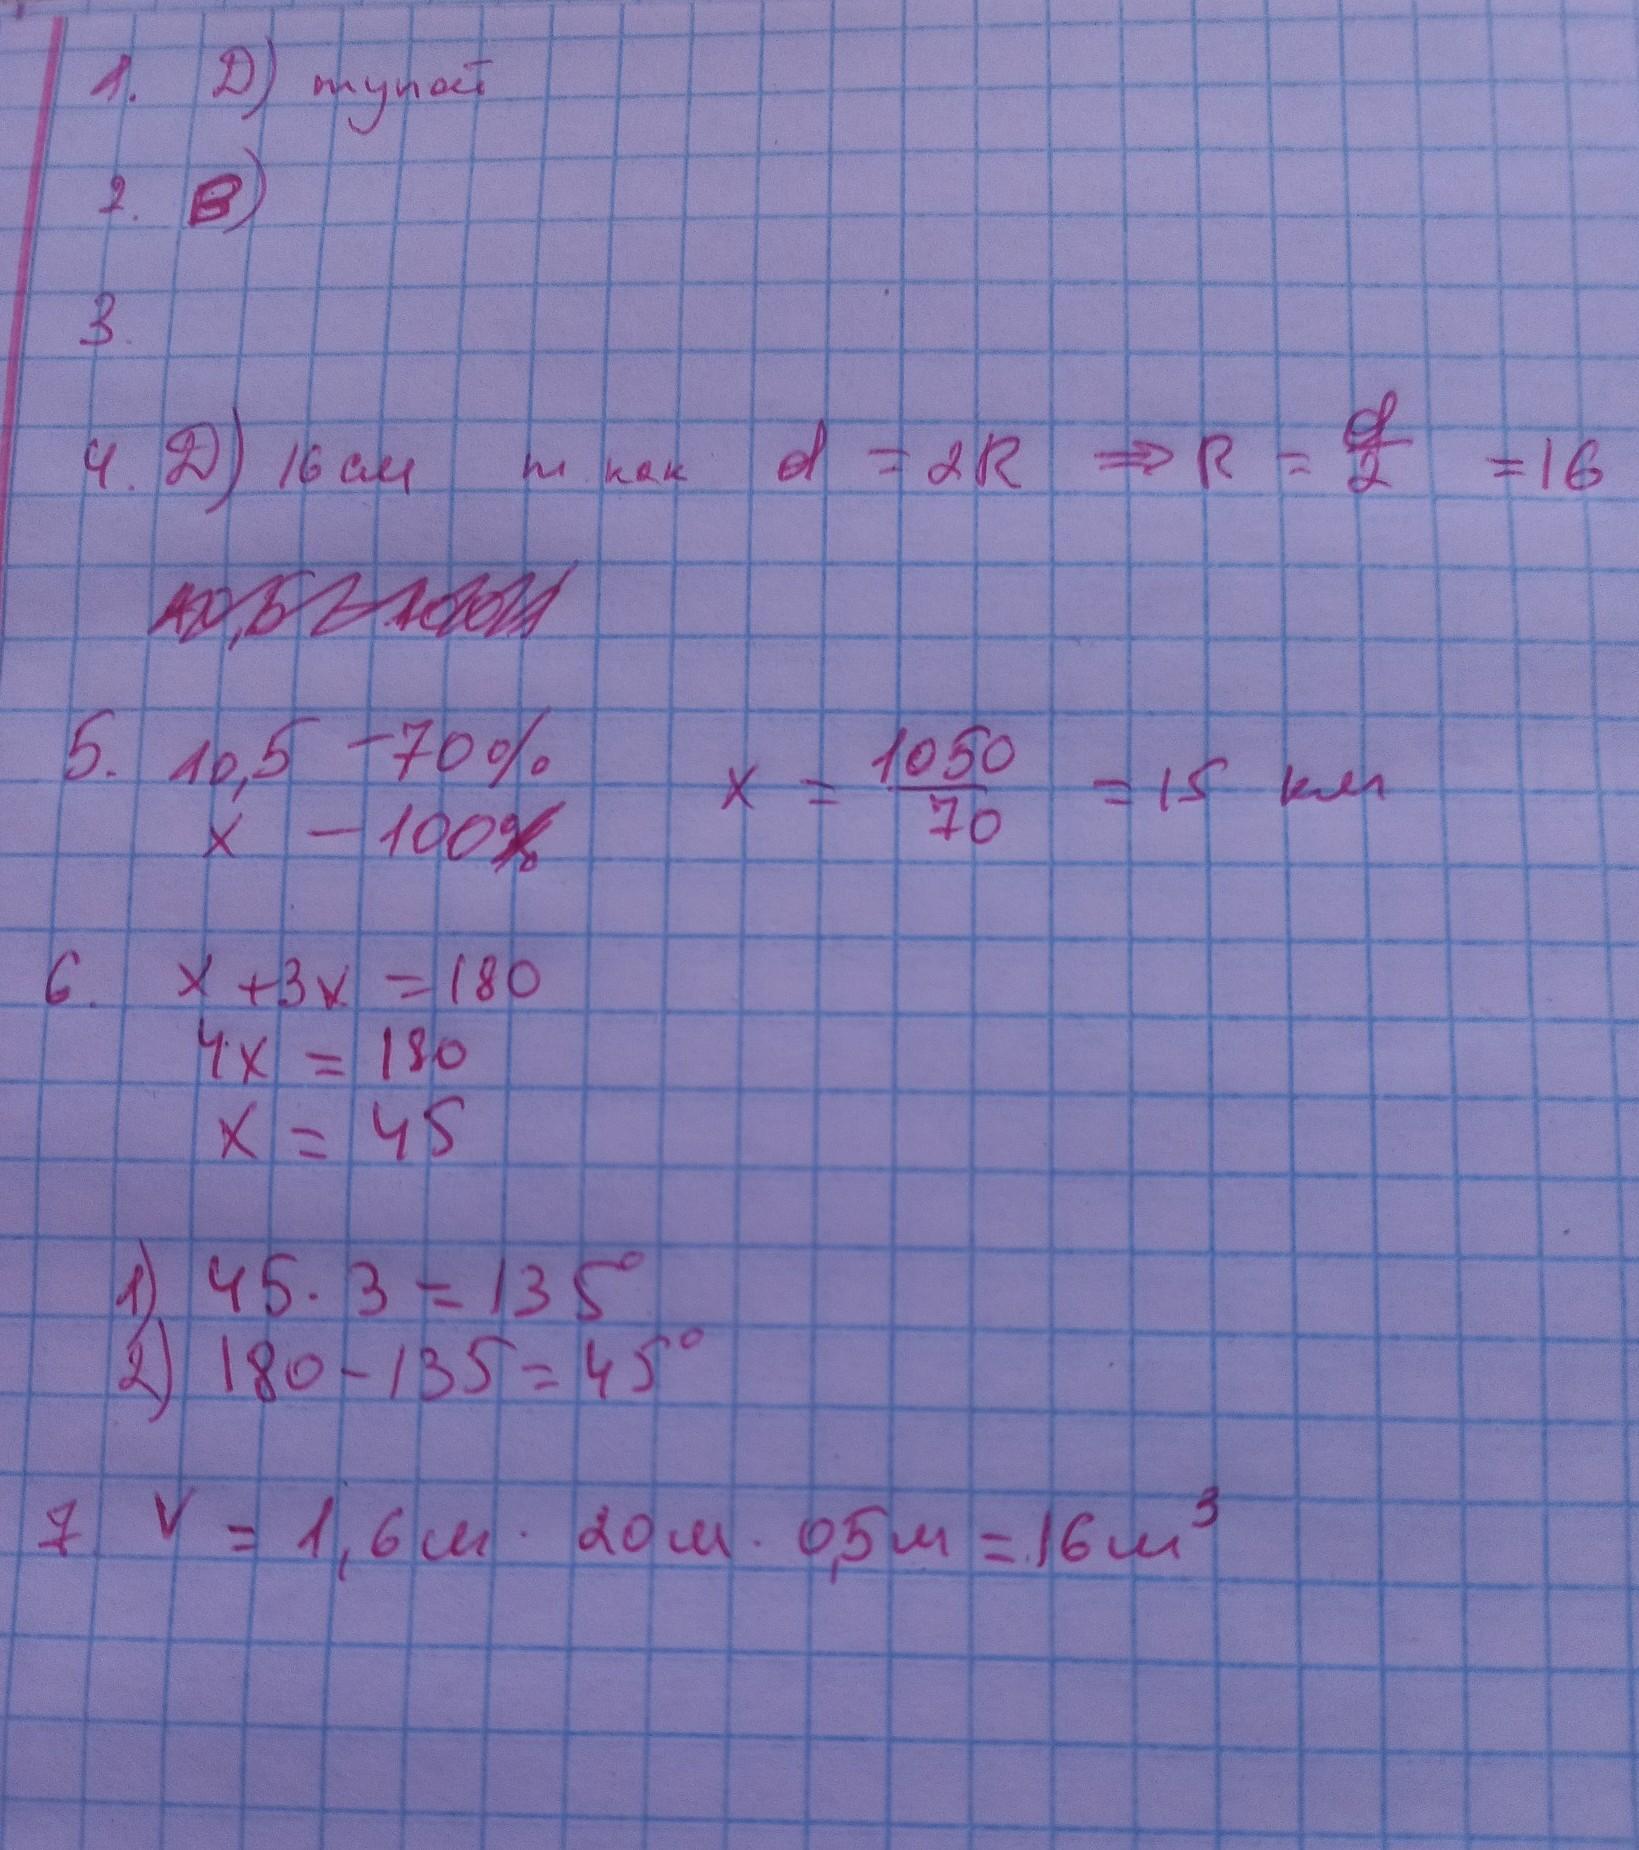 1. Д) тупой
2. В)
3.
4. Д) 16 см т как d = 2R ⇒ R = d/2 = 16
5. 10,5 - 70% x = 1050/70 = 15 км
x - 100%
6. x + 3x = 180
4x = 180
x = 45
1) 45 · 3 = 135°
2) 180 - 135 = 45°
7 V = 1,6 м · 20 м · 0,5 м = 16 м³